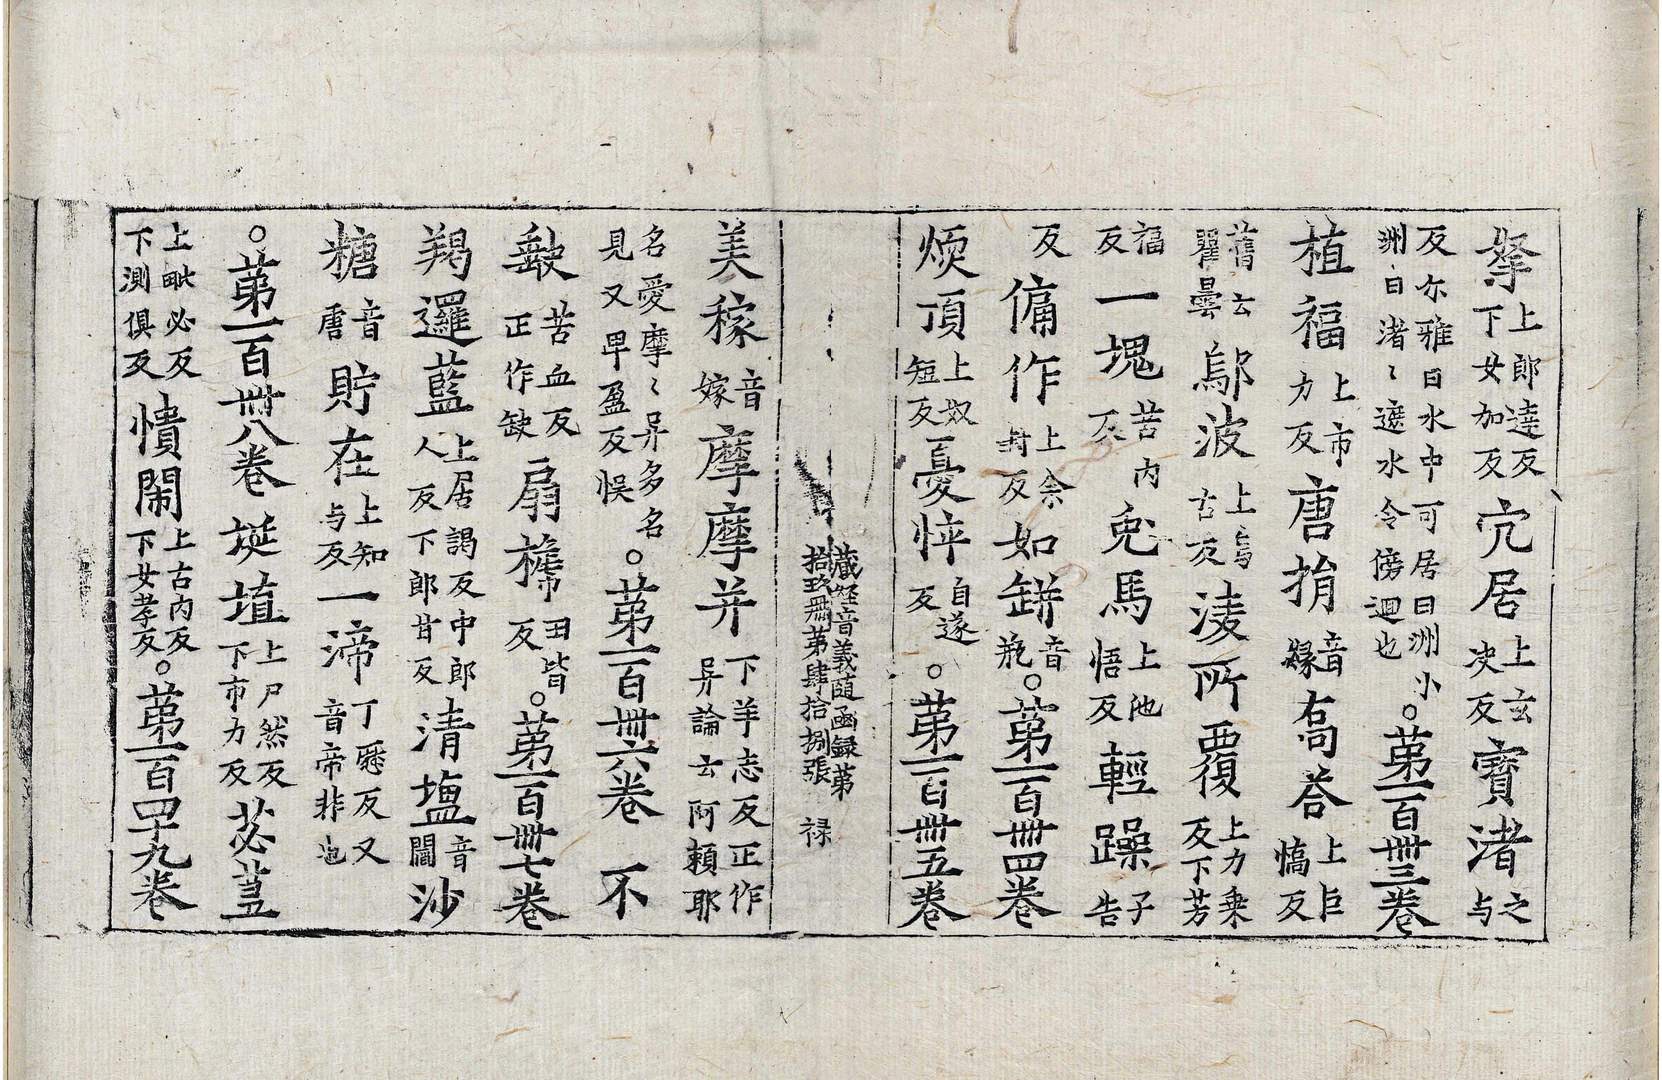 拏上郎達反下女加反 宂居上玄决反 寶渚之与
反尔雅曰水中可居曰洲小洲曰渚〻遮水令傍迴也 。苐一百卌三卷
植福上市力反 唐捐音緣 喬荅上巨憍反
舊云瞿曇 鄔波上烏古反 淩所覆上力乗反下芳
福反 一塊苦内反 兎馬上他悟反 輕躁子告
反 傭作上余封反 如缾音瓶 。苐一百卌四卷
煗頂上奴短反 憂悴自遂反 。苐一百卌五卷
藏經音義随函録第拾玖冊苐肆拾捌張 禄
美稼音嫁 摩摩并下羊志反正作异論云阿頼耶
名愛摩〻异多名見又畀盈反悮 。苐一百卌六卷 不
㱿苦血反正作缺 扇搋丑皆反 。苐一百卌七卷
羯邏藍上居謁反中郎人反下郎甘反 清塩音閻 沙
糖音唐 貯在上知与反 一渧丁厯反又音帝非也
。苐一百卌八卷 埏埴上尸然反下市力反 苾蒭
上毗必反下測俱反 憒閙上古内反下女孝反 。苐一百四十九卷